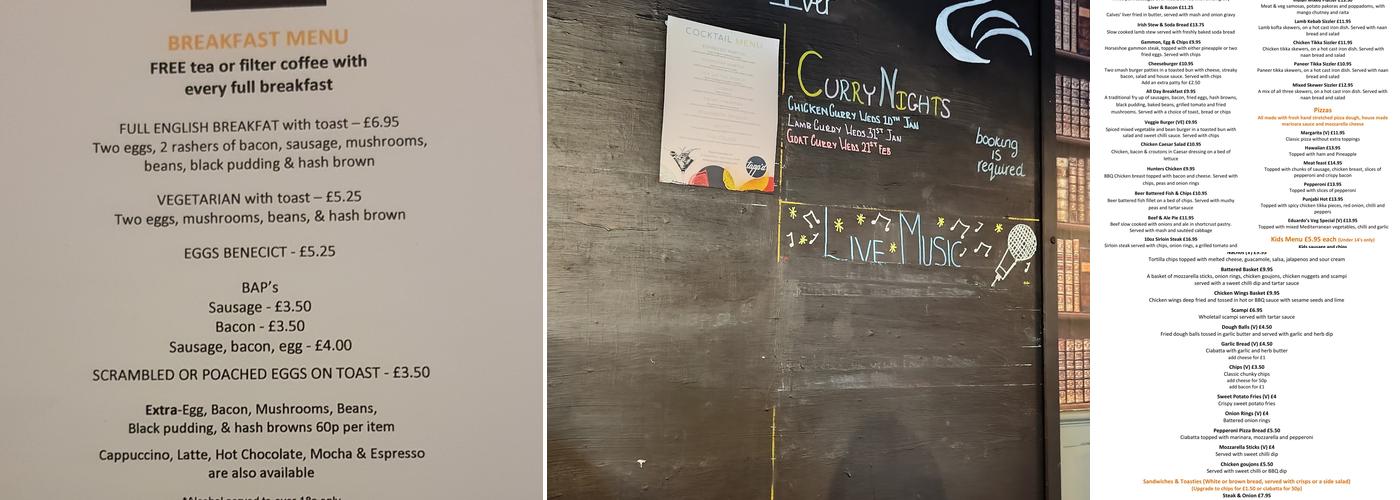 BREAKFAST MENU
FREE tea or filter coffee with
every full breakfast
FULL ENGLISH BREAKFAT with toast – £6.95
Two eggs, 2 rashers of bacon, sausage, mushrooms,
beans, black pudding & hash brown
VEGETARIAN with toast – £5.25
Two eggs, mushrooms, beans, & hash brown
EGGS BENECICT - £5.25
BAP's
Sausage - £3.50
Bacon - £3.50
Sausage, bacon, egg - £4.00
SCRAMBLED OR POACHED EGGS ON TOAST - £3.50
Extra-Egg, Bacon, Mushrooms, Beans,
Black pudding, & hash browns 60p per item
Cappuccino, Latte, Hot Chocolate, Mocha & Espresso
are also available
COCKTAIL MENU
CURRY NIGHTS
CHICKEN CURRY WEDS 10TH JAN
LAMB CURRY WEDS 31ST JAN
GOAT CURRY WEDS 21ST FEB
booking
is
required
LIVE MUSIC
Liver & Bacon £11.25
Calves' liver fried in butter, served with mash and onion gravy
Irish Stew & Soda Bread £13.75
Slow cooked lamb stew served with freshly baked soda bread
Gammon, Egg & Chips £9.95
Horseshoe gammon steak, topped with either pineapple or two
fried eggs. Served with chips
Cheeseburger £10.95
Two smash burger patties in a toasted bun with cheese, streaky
bacon, salad and house sauce. Served with chips
Add an extra patty for £2.50
All Day Breakfast £9.95
A traditional fry up of sausages, bacon, fried eggs, hash browns,
black pudding, baked beans, grilled tomato and fried
mushrooms. Served with a choice of toast, bread or chips
Veggie Burger (VE) £9.95
Spiced mixed vegetable and bean burger in a toasted bun with
salad and sweet chilli sauce. Served with chips
Chicken Caesar Salad £10.95
Chicken, bacon & croutons in Caesar dressing on a bed of
lettuce
Hunters Chicken £9.95
BBQ Chicken breast topped with bacon and cheese. Served with
chips, peas and onion rings
Beer Battered Fish & Chips £10.95
Beer battered fish fillet on a bed of chips. Served with mushy
peas and tartar sauce
Beef & Ale Pie £11.95
Beef slow cooked with onions and ale in shortcrust pastry.
Served with mash and sautéed cabbage
10oz Sirloin Steak £16.95
Sirloin steak served with chips, onion rings, a grilled tomato and
Meat & veg samosas, potato pakoras and poppadoms, with
mango chutney and raita
Lamb Kebab Sizzler £11.95
Lamb kofta skewers, on a hot cast iron dish. Served with naan
bread and salad
Chicken Tikka Sizzler £11.95
Chicken tikka skewers, on a hot cast iron dish. Served with
naan bread and salad
Paneer Tikka Sizzler £10.95
Paneer tikka skewers, on a hot cast iron dish. Served with naan
bread and salad
Mixed Skewer Sizzler £12.95
A mix of all three skewers, on a hot cast iron dish. Served with
naan bread and salad
Pizzas
All made with fresh hand stretched pizza dough, house made
marinara sauce and mozzarella cheese
Margarita (V) £11.95
Classic pizza without extra toppings
Hawaiian £13.95
Topped with ham and Pineapple
Meat feast £14.95
Topped with chunks of sausage, chicken breast, slices of
pepperoni and crispy bacon
Pepperoni £13.95
Topped with slices of pepperoni
Punjabi Hot £13.95
Topped with spicy chicken tikka pieces, red onion, chilli and
peppers
Eduardo's Veg Special (V) £13.95
Topped with mixed Mediterranean vegetables, chilli and garlic
Kids Menu £5.95 each (Under 14's only)
Kids sausage and chips
Nachos (V) £9.95
Tortilla chips topped with melted cheese, guacamole, salsa, jalapenos and sour cream
Battered Basket £9.95
A basket of mozzarella sticks, onion rings, chicken goujons, chicken nuggets and scampi
served with a sweet chilli dip and tartar sauce
Chicken Wings Basket £9.95
Chicken wings deep fried and tossed in hot or BBQ sauce with sesame seeds and lime
Scampi £6.95
Wholetail scampi served with tartar sauce
Dough Balls (V) £4.50
Fried dough balls tossed in garlic butter and served with garlic and herb dip
Garlic Bread (V) £4.50
Ciabatta with garlic and herb butter
add cheese for £1
Chips (V) £3.50
Classic chunky chips
add cheese for 50p
add bacon for £1
Sweet Potato Fries (V) £4
Crispy sweet potato fries
Onion Rings (V) £4
Battered onion rings
Pepperoni Pizza Bread £5.50
Ciabatta topped with marinara, mozzarella and pepperoni
Mozzarella Sticks (V) £4
Served with sweet chilli dip
Chicken goujons £5.50
Served with sweet chilli or BBQ dip
Sandwiches & Toasties (White or brown bread, served with crisps or a side salad)
(Upgrade to chips for £1.50 or ciabatta for 50p)
Steak & Onion £7.95